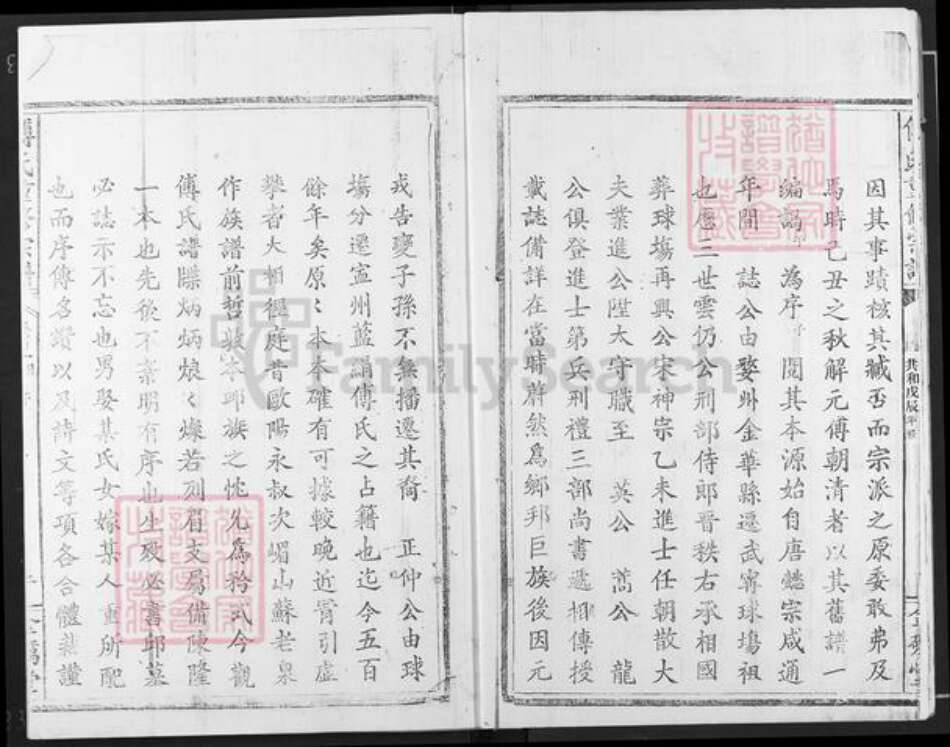 因其事蹟核其臧否而宗派之原委敢弗及
焉時己丑之秋解元傅朝清者以其舊譜一
編謁 為序 閱其本源始自唐懿宗咸通
年間 誌公由婺州金華縣遷武寧球塲祖
也應二世雲仍公刑部侍郎晋秩右承相國
葬球塲再興公宋神宗乙未進士任朝散大
夫業進公陞太守職至 英公 蒿公 龍
公俱登進士第兵刑禮三部尚書遞相傳授
載誌備詳在當時蔚然為鄉邦巨族後因元
戎告變子孫不無播遷其裔 正仲公由球
塲分遷寧州藍 傅氏之占籍也迄今五百
餘年矣原〻本本確有可據較晚近霄引虛
攀者大相徑庭昔歐陽永叔次嵋山蘇老泉
作族譜前哲敦本耶族之忱允為矜式今觀
傅氏譜牒炳炳烺〻燦若列眉支屬備陳隆
一本也先後不紊明有序也生殁必書邱墓
必誌示不忘也男娶某氏女嫁某人重所配
也而序傳名贊以及詩文等項各合體裁謹
傅氏重修宗譜
共和戊辰年修
FamilySearch